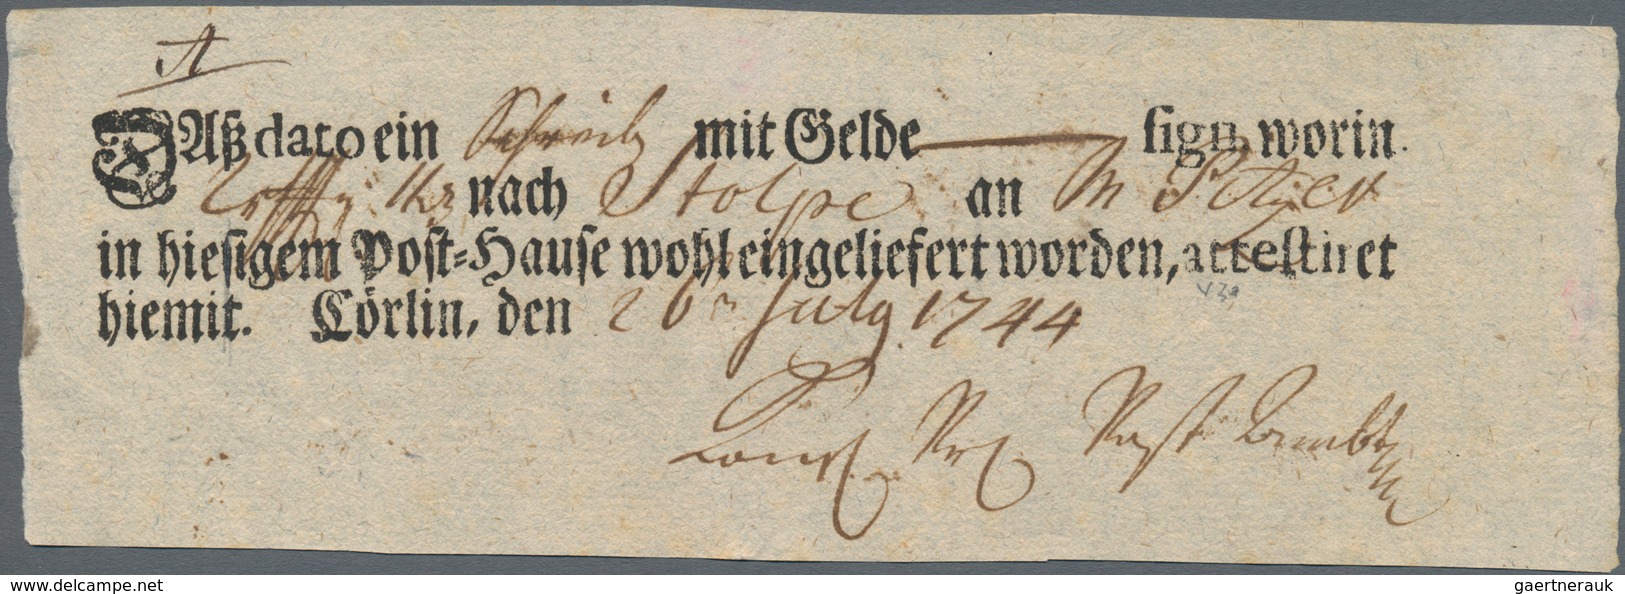 A
DAß dato ein Schreib mit Gelde sign. worin
nach Stolpe an M
in hiesigem Post-Hause wohl eingeliefert worden, attestiret
hiemit. Cörlin, den 26 July 1744
Post
www.delcampe.net
gaertnerauk